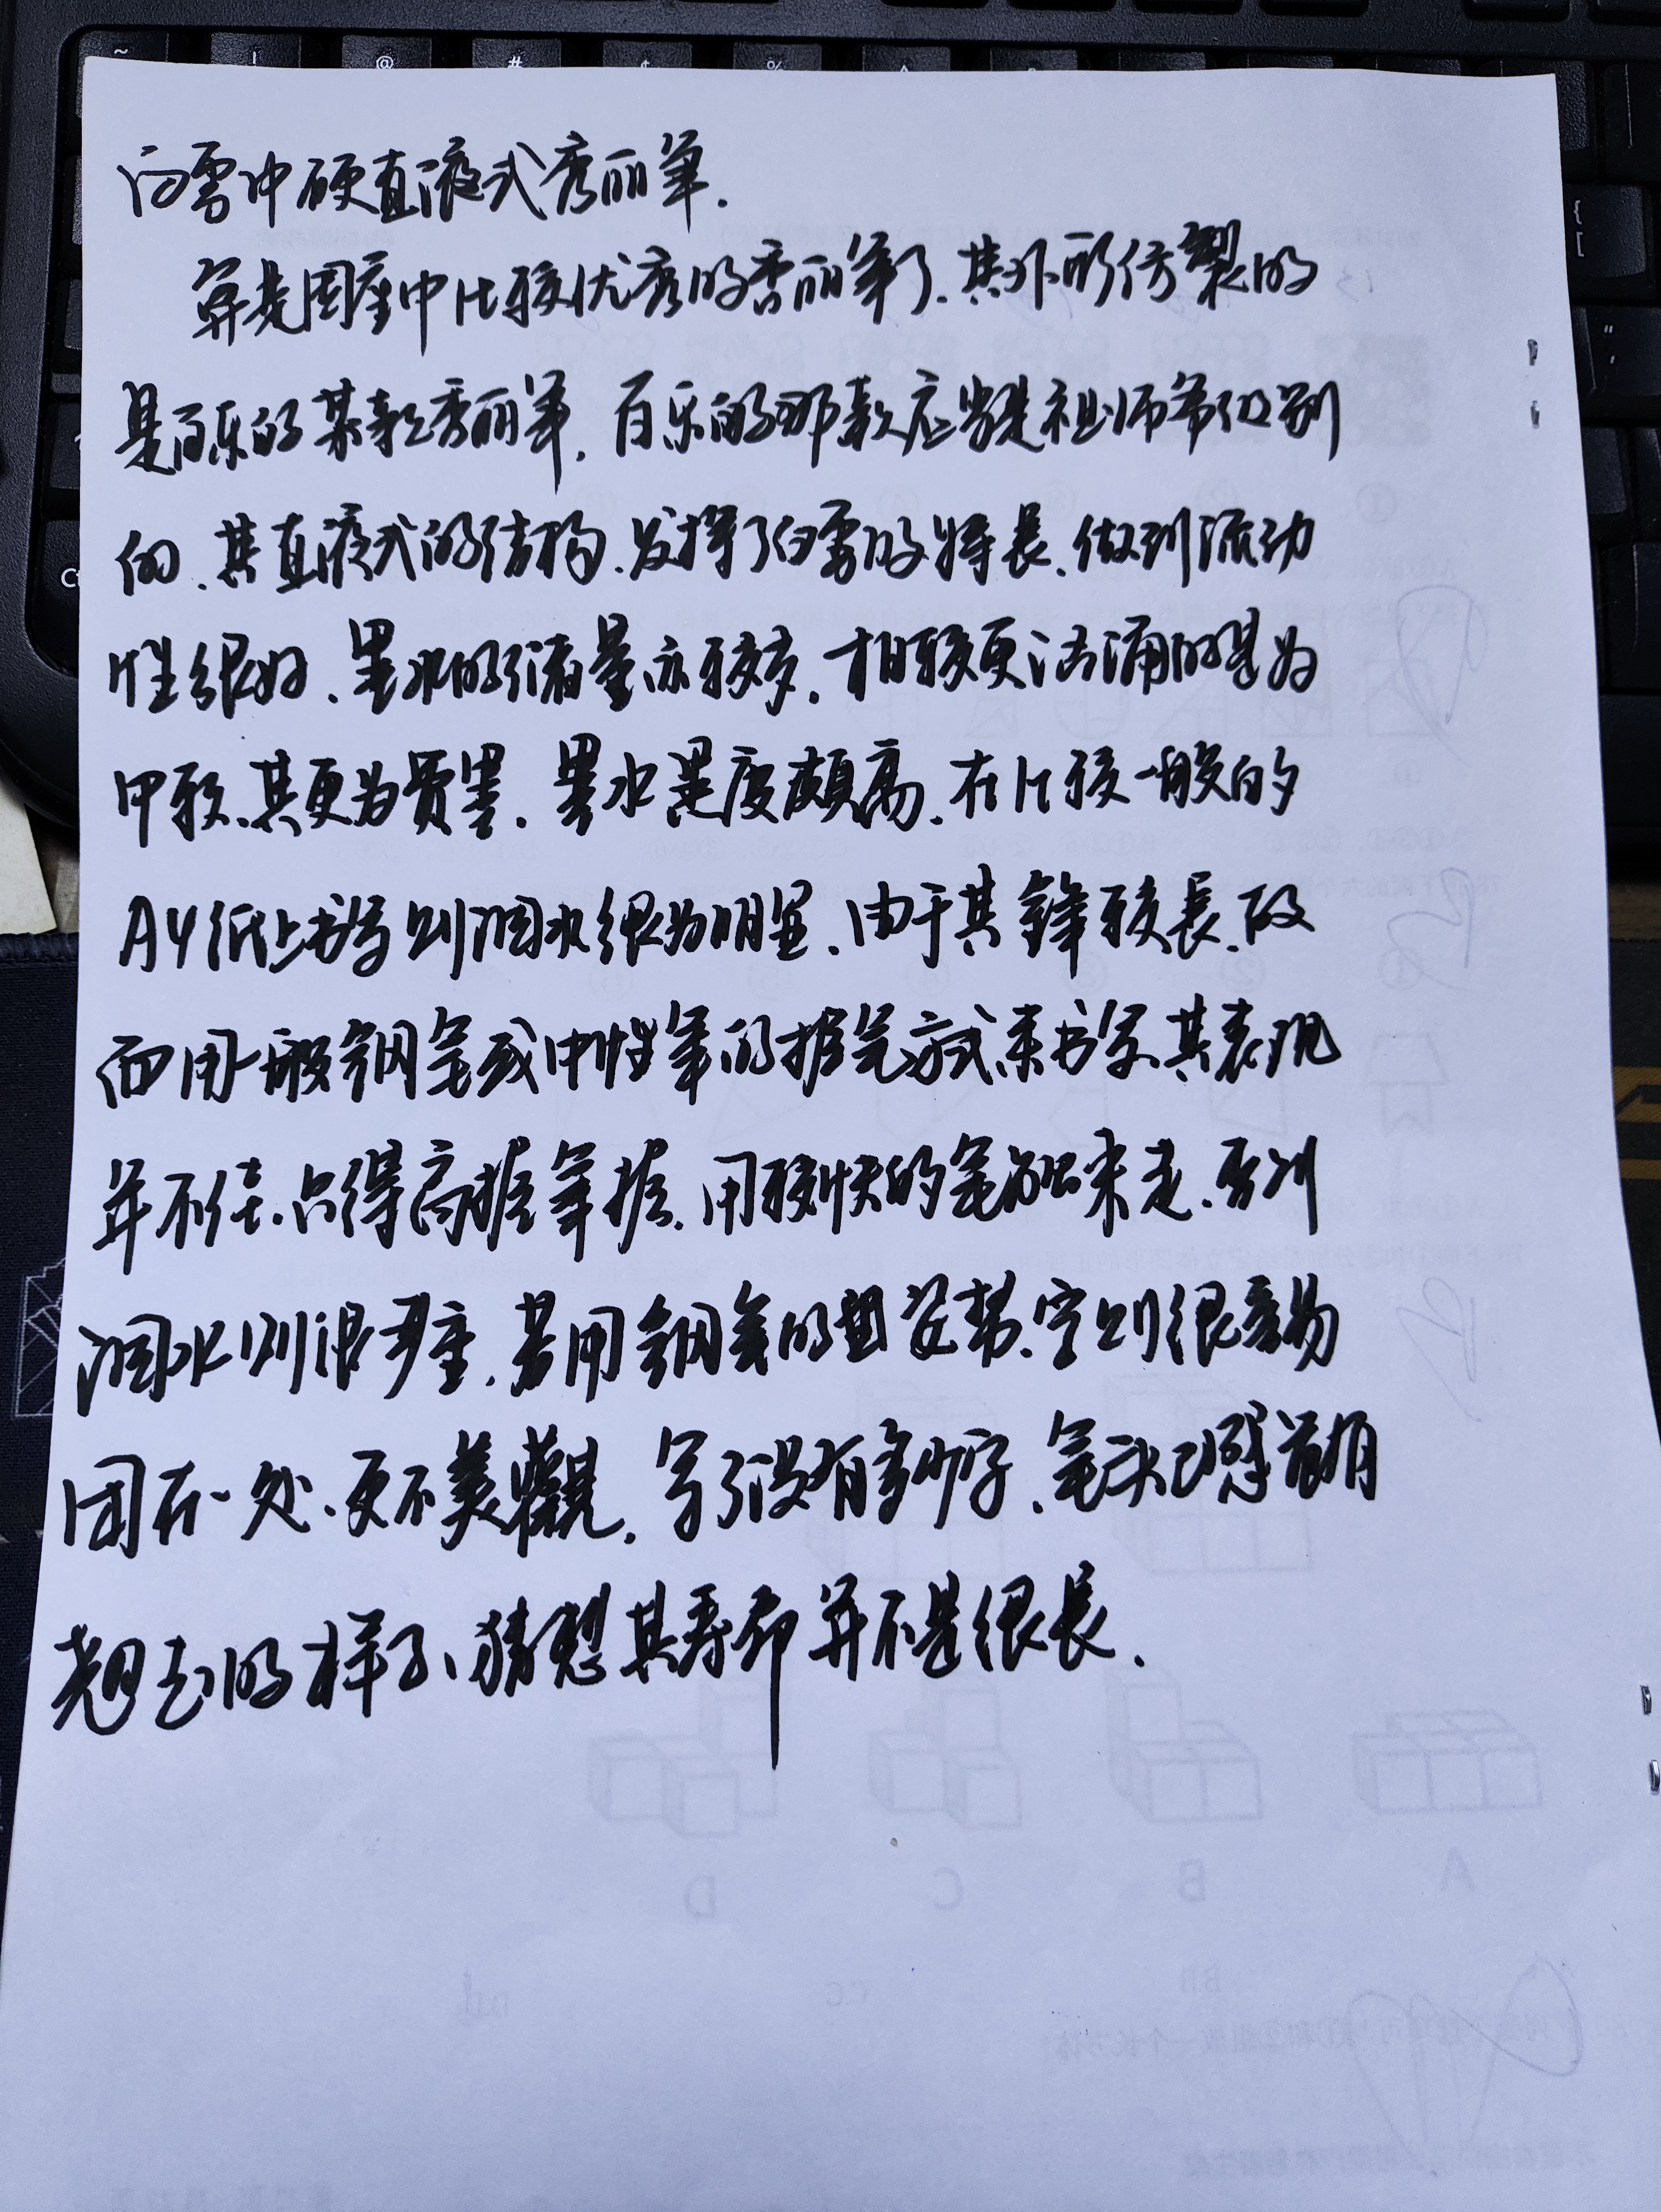 白雪中硬直液式秀丽笔.
算是国产中比较优秀的秀丽笔了.其外形仿製的
是百乐的某款秀丽笔.百乐的那款应当是祖师爷级别
的.其直液式的结构.发挥了白雪的特長.做到流动
性很好.墨水的储量亦较多.相较更活涌的是如
甲较.其更为贵墨.墨水黑度頗高.在比较一般的
A4纸上书写则洇水很为明显.由于其鋒较長.故
而用一般钢笔或中性笔的握笔方式来书写.其表现
并不佳.只得高握笔握.用较快的笔触来走.否则
洇水则很严重.若用钢笔的那姿势.字则很容易
团在一处.更不美觀.写了没有多少字.笔头已感觉有
翘毛的样子、猜想其寿命并不是很長.